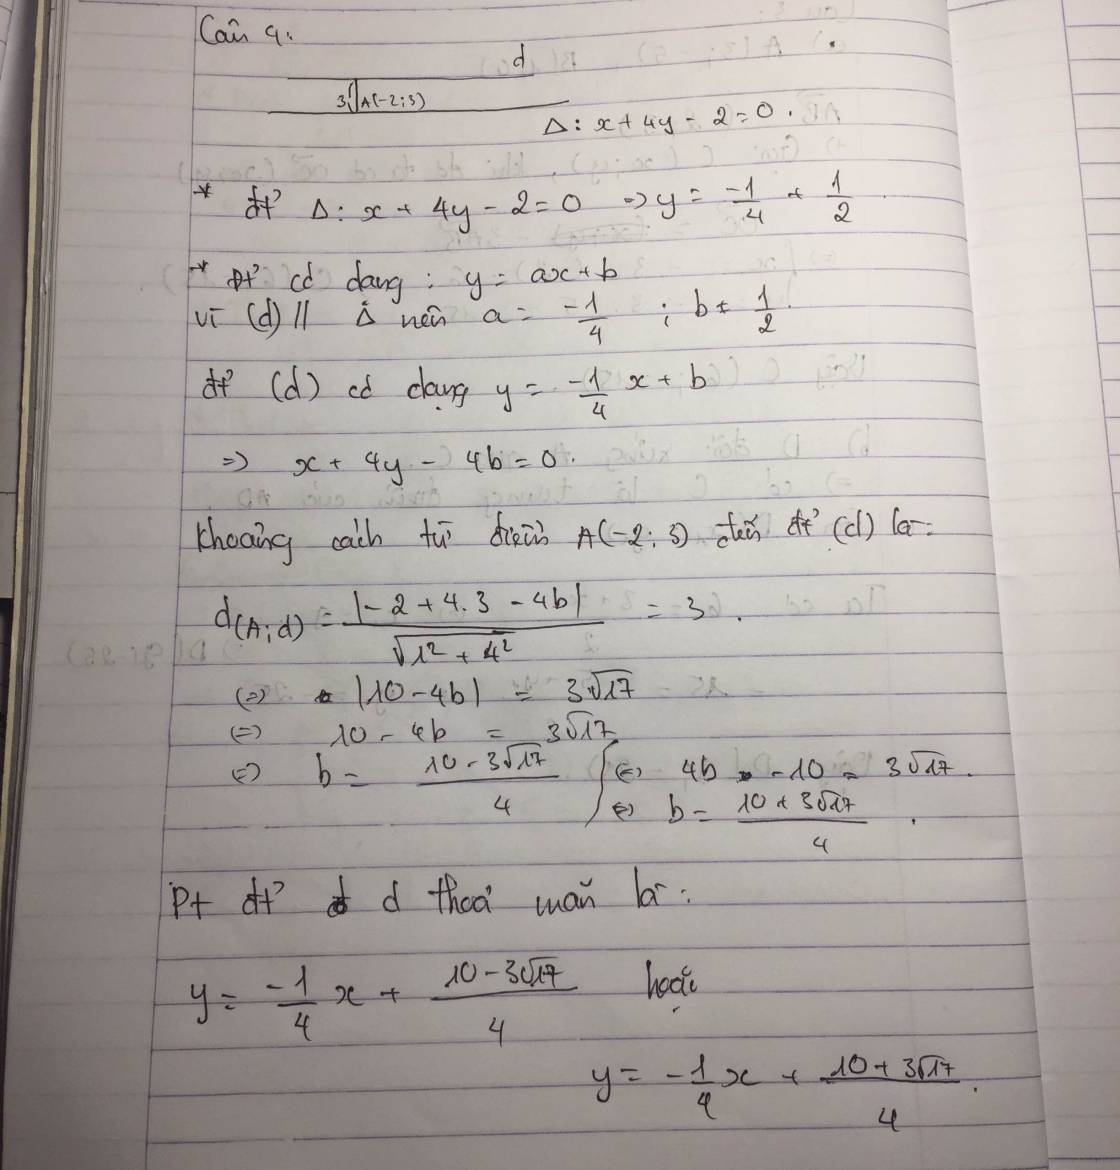 Câu 4:
d
3 A(-2;3)
Δ: x + 4y - 2 = 0.
* đt² Δ: x + 4y - 2 = 0 => y = -1/4 + 1/2
* Pt² có dạng: y = ax + b
vì (d) // Δ nên a = -1/4 ; b ≠ 1/2
đt² (d) có dạng y = -1/4 x + b
=> x + 4y - 4b = 0.
Khoảng cách từ điểm A(-2; 3) đến đt² (d) là:
d(A;d) = |-2 + 4.3 - 4b| / √(1² + 4²) = 3.
(=) |10 - 4b| = 3√17
(=) 10 - 4b = 3√17
(=) b = (10 - 3√17)/4 (=) 4b - 10 = 3√17.
(=) b = (10 + 3√17)/4.
Pt đt² d thoả mãn là:
y = -1/4 x + (10 - 3√17)/4 hoặc
y = -1/4 x + (10 + 3√17)/4.